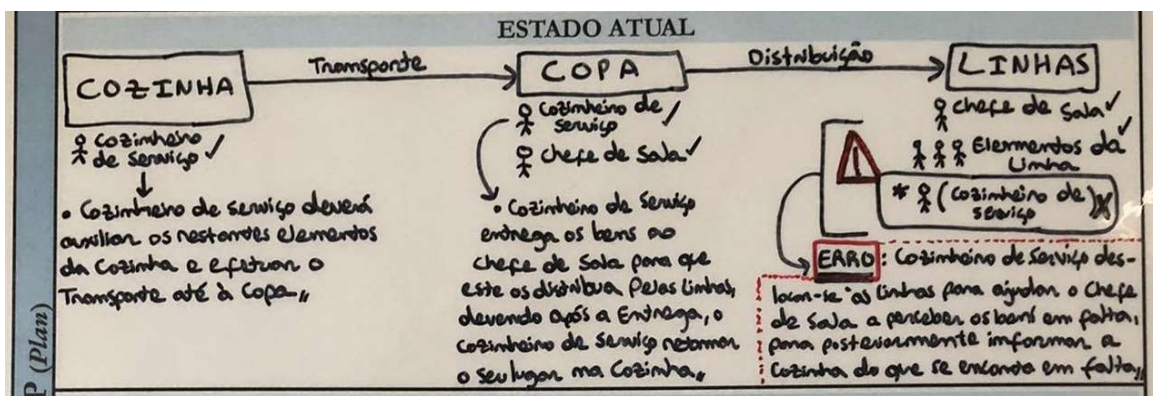 ESTADO ATUAL
COZINHA
Transporte
COPA
Distribuição
LINHAS
Cozinheiro
de Serviço ✓
• Cozinheiro de Serviço deverá
auxiliar os restantes elementos
da Cozinha e efetuar o
Transporte até à Copa,,
Cozinheiro de
Serviço ✓
Chefe de Sala ✓
• Cozinheiro de Serviço
entrega os bens ao
chefe de Sala para que
este os distribua pelas linhas,
devendo após a Entrega, o
cozinheiro de Serviço retomar
o seu lugar na Cozinha,,
Chefe de Sala ✓
Elementos da ✓
Linha
* (Cozinheiro de
serviço) X
ERRO: Cozinheiro de Serviço des-
loca-se às linhas para ajudar o Chefe
de Sala a perceber os bens em falta,
para posteriormente informar a
Cozinha do que se encontra em falta,,
P (Plan)